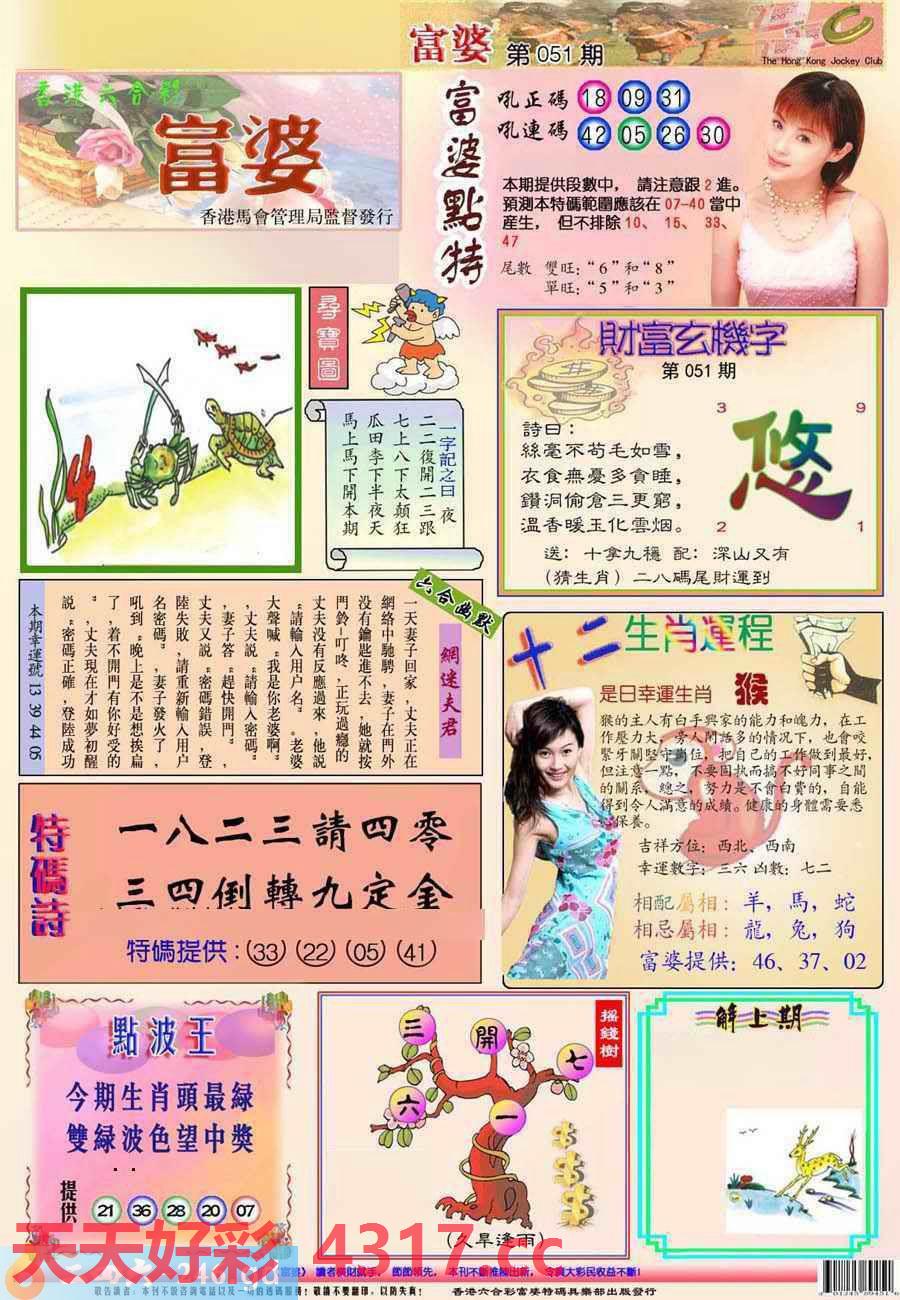 富婆 第051期
The Hong Kong Jockey Club
香港六合彩
富婆
香港馬會管理局監督發行
富婆點特
吼正碼 18 09 31
吼連碼 42 05 26 30
本期提供段數中, 請注意跟2進。
預測本特碼範圍應該在07-40當中
産生, 但不排除10、 15、 33、
47
尾數 雙旺:“6”和“8”
單旺:“5”和“3”
尋寶圖
一字記之曰 夜
二二復開二三跟
七上八下太顛狂
瓜田李下半夜天
馬上馬下開本期
財富玄機字
第051期
詩曰:
絲毫不苟毛如雪,
衣食無憂多貪睡,
鑽洞偷倉三更窮,
温香暖玉化雲烟。
3 9
悠
2 1
送: 十拿九穩 配: 深山又有
(猜生肖) 二八碼尾財運到
六合幽默
網迷夫君
一天妻子回家,丈夫正在
網絡中馳騁,妻子在門外
没有鑰匙進不去,她就按
門鈴-叮咚,正玩過癮的
丈夫没有反應過來,他説
“請輸入用户名。”老婆
大聲喊“我是你老婆啊”
,丈夫説“請輸入密碼”
,妻子答“趕快開門”,
丈夫又説“密碼錯誤,登
陸失敗,請重新輸入用户
名密碼。”妻子發火了,
吼到“晚上是不是想挨扁
了,着不開門有你好受的
”,丈夫現在才如夢初醒
説“密碼正確,登陸成功
本期幸運號 13 39 44 05
十二生肖運程
是日幸運生肖 猴
猴的主人有白手興家的能力和魄力,在工
作壓力大、旁人閑話多的情况下,也會咬
緊牙關堅守崗位,把自己的工作做到最好,
但注意一點,不要固執而搞不好同事之間
的關系,總之,努力是不會白費的,自能
得到令人滿意的成績。健康的身體需要悉
心保養。
吉祥方位:西北、西南
幸運數字:三六 凶數:七二
相配屬相:羊,馬,蛇
相忌屬相:龍,兔,狗
富婆提供:46、37、02
特碼詩
一八二三請四零
三四倒轉九定金
特碼提供:(33)(22)(05)(41)
點波王
今期生肖頭最緑
雙緑波色望中獎
提供 21 36 28 20 07
摇錢樹
三 開 七
六 一
(久旱逢雨)
解上期
天天好彩 4317.cc
富婆》讀者橫財就手, 節節領先, 本刊不斷推陳出新, 令廣大彩民收益不斷!
香港六合彩富婆特碼俱樂部出版發行